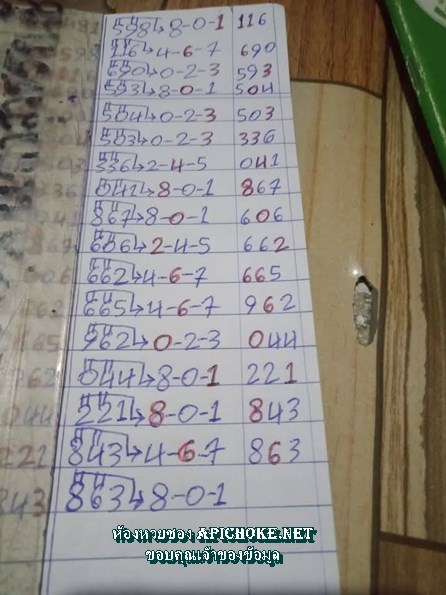 598→8-0-1 116
116→4-6-7 690
690→0-2-3 593
593→8-0-1 504
504→0-2-3 503
503→0-2-3 336
336→2-4-5 041
041→8-0-1 867
867→8-0-1 606
606→2-4-5 662
662→4-6-7 665
665→4-6-7 962
962→0-2-3 044
044→8-0-1 221
221→8-0-1 843
843→4-6-7 863
863→8-0-1
ห้องหวยซอง APICHOKE.NET
ขอบคุณเจ้าของข้อมูล